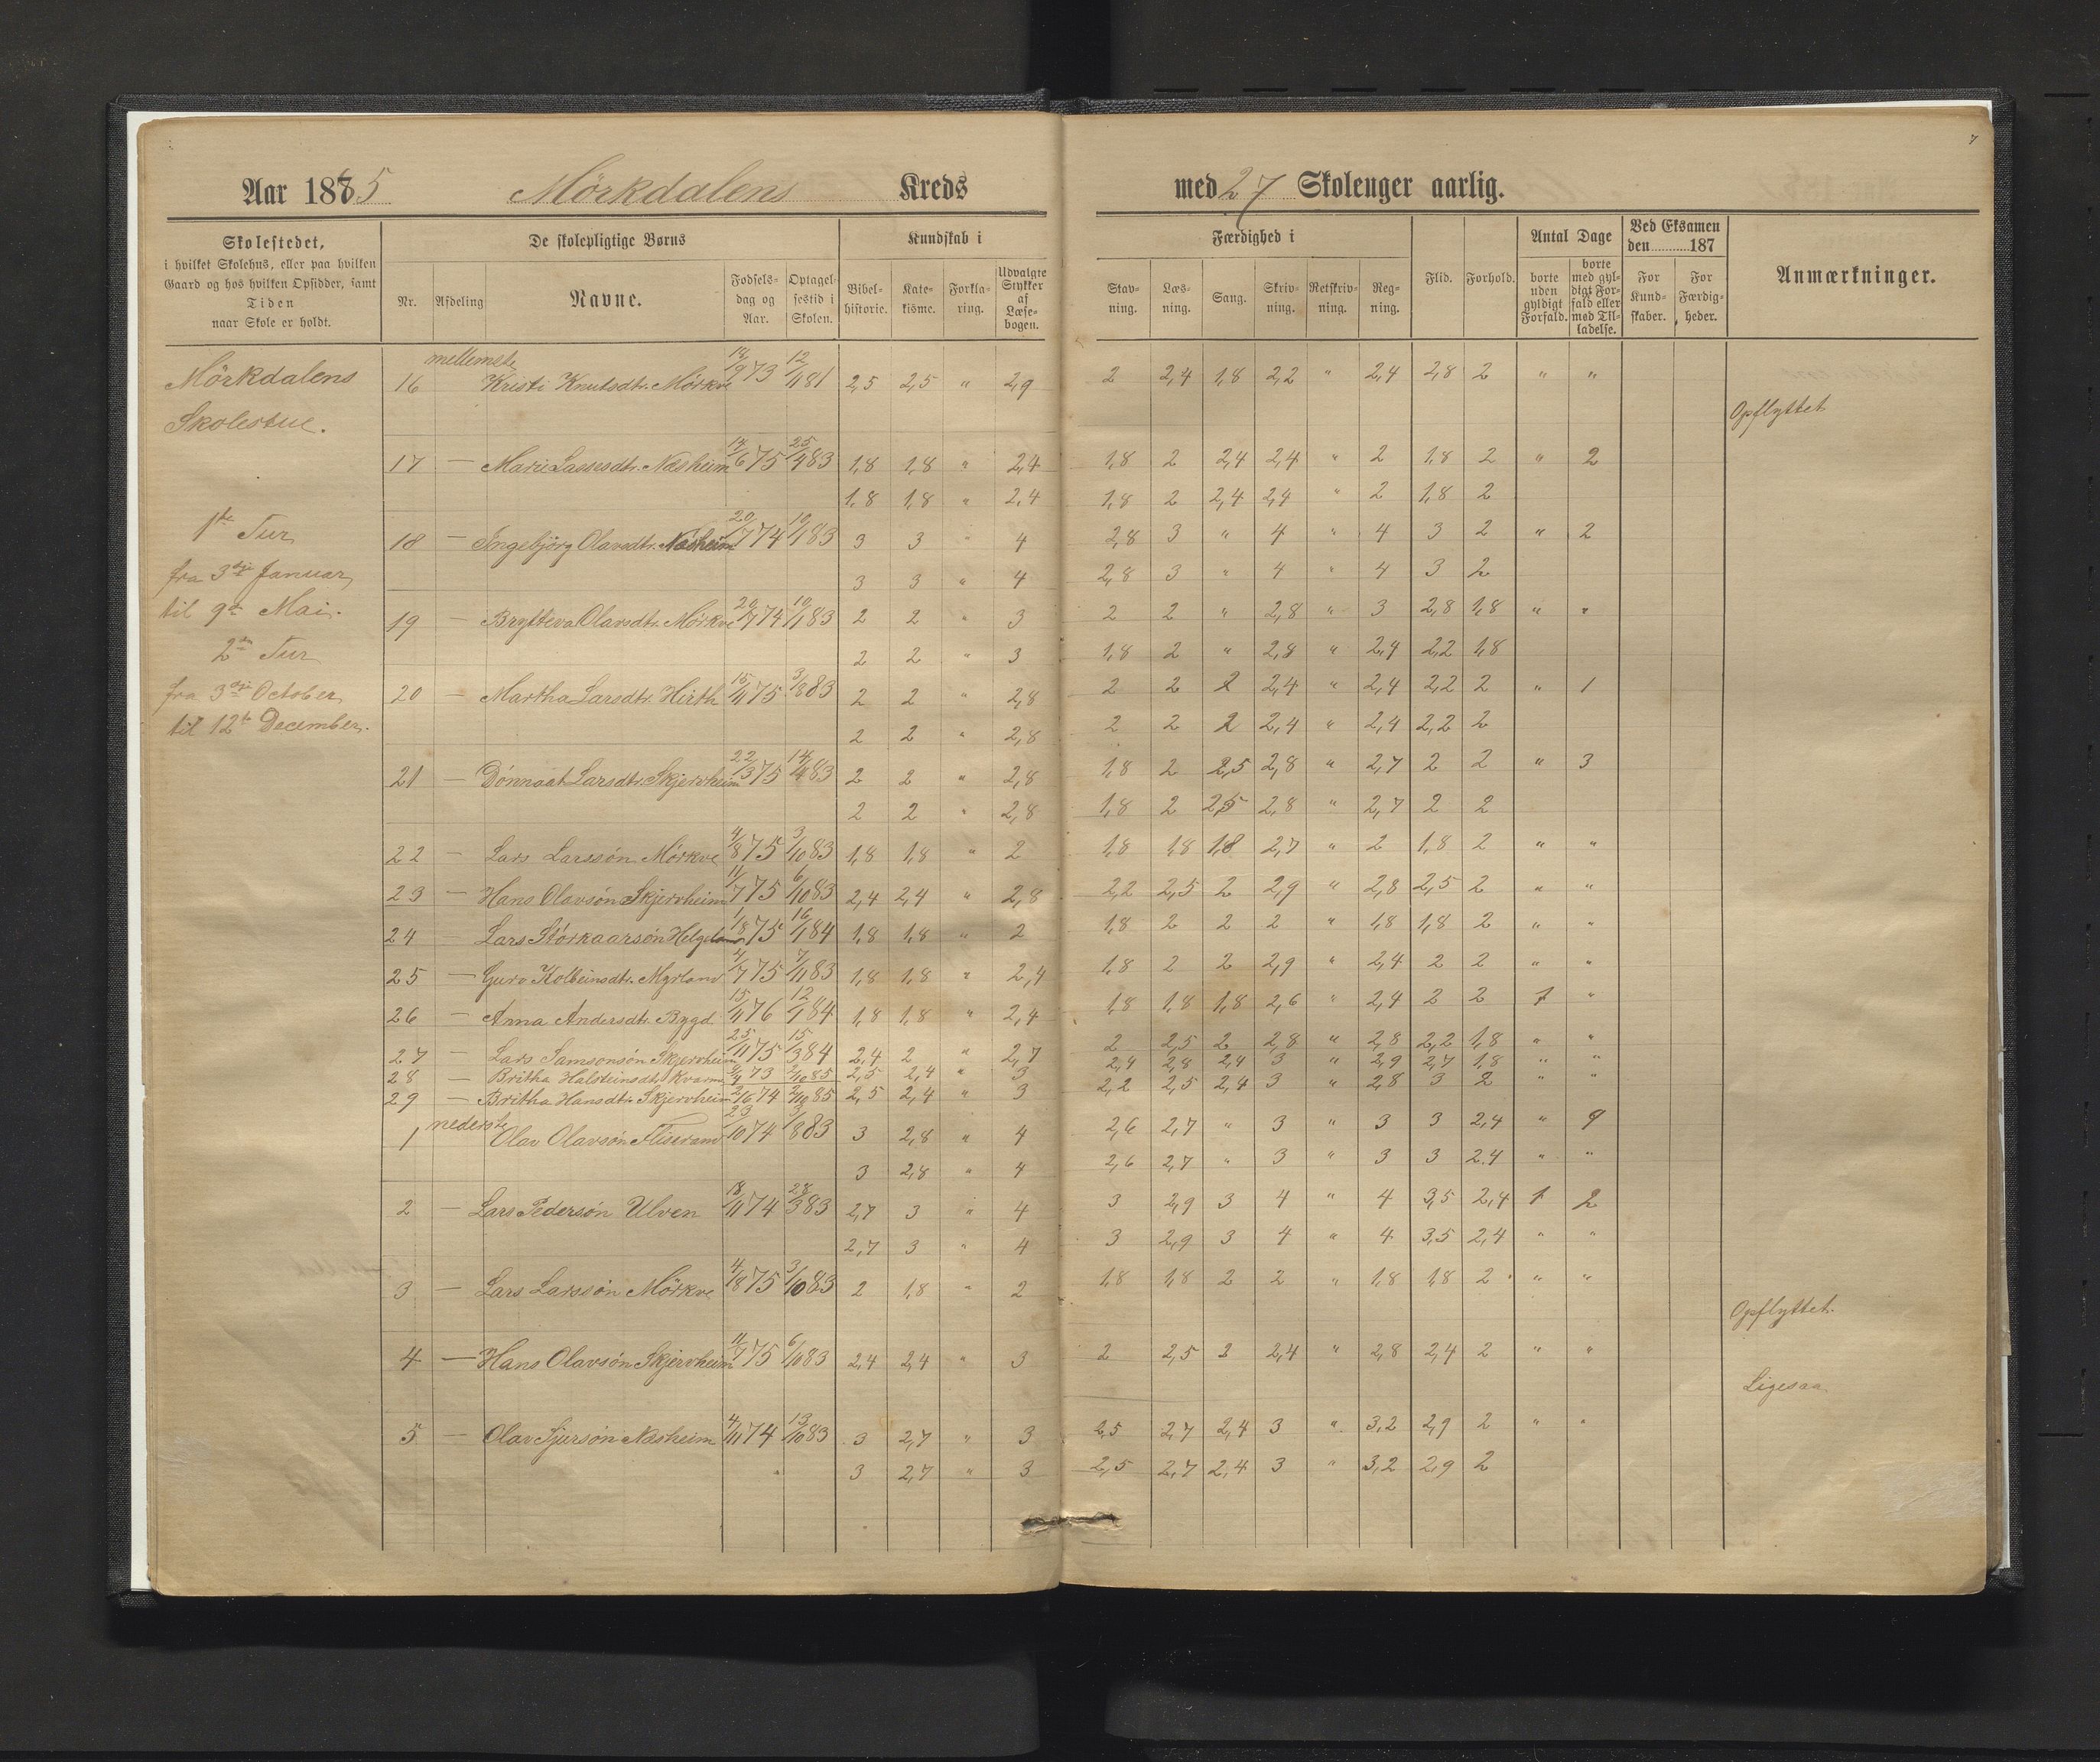 7
Aar 1885 Mörkdalens Kreds med 27 Skolenger aarlig.
Skolestedet,
i hvilket Skolehus, eller paa hvilken
Gaard og hos hvilken Opsidder, samt
Tiden
naar Skole er holdt.
De skolepligtige Børns
Nr. Afdeling Navne. Fødsels-dag og Aar. Optagel-sestid i Skolen.
Kundskab i
Bibel-historie. Kate-kisme. Forkla-ring. Udvalgte Stykker af Læse-bogen.
Færdighed i
Stav-ning. Læs-ning. Sang. Skriv-ning. Retskriv-ning. Reg-ning.
Flid. Forhold.
Antal Dage
borte uden gyldigt Forfald. borte med gyl-digt For-fald eller med Til-ladelse.
Ved Eksamen den 187
For Kund-skaber. For Færdig-heder.
Anmærkninger.
Mörkdalens
Skolestue.
1ste Tur
fra 3die Januar
til 9de Mai.
2den Tur
fra 3die October
til 12te December.
mellemste
16 Kristi Knutsdtr. Mörkve 18/9 73 12/1 81 2,5 2,5 " 2,9 2 2,4 1,8 2,2 " 2,4 2,8 2 " "
Opflyttet
17 — Marie Lassesdtr. Næsheim 14/6 75 25/4 83 1,8 1,8 " 2,4 1,8 2 2,4 2,4 " 2 1,8 2 " 2
1,8 1,8 " 2,4 1,8 2 2,4 2,4 " 2 1,8 2
18 — Ingebjörg Olavsdtr. Næsheim 20/7 74 10/1 83 3 3 " 4 2,8 3 " 4 " 4 3 2 " 2
3 3 " 4 2,8 3 " 4 " 4 3 2
19 — Brytteva Olavsdtr. Mörkve 20/7 74 10/1 83 2 2 " 3 2 2 " 2,8 " 3 2,8 1,8 " "
2 2 " 3 1,8 2 " 2,8 " 2,4 2,2 1,8
20 — Martha Larsdtr. Hirth 15/11 75 3/8 83 2 2 " 2,8 2 2 2 2,4 " 2,4 2,2 2 " 1
2 2 " 2,8 2 2 2 2,4 " 2,4 2,2 2
21 — Dönnaat Larsdtr. Skjervheim 22/3 75 14/4 83 2 2 " 2,8 1,8 2 2,5 2,8 " 2,7 2 2 " 3
2 2 " 2,8 1,8 2 2,5 2,8 " 2,7 2 2
22 — Lars Larssön Mörkve 4/8 75 3/10 83 1,8 1,8 " 2 1,8 1,8 1,8 2,7 " 2 1,8 2 " "
23 — Hans Olavsön Skjervheim 11/7 75 6/10 83 2,4 2,4 " 2,8 2,2 2,5 2 2,9 " 2,8 2,5 2 " "
24 — Lars Störkaarsön Helgeland 1/8 75 16/1 84 1,8 1,8 " 2 1,8 2 2 2 " 1,8 1,8 2 " "
25 — Guro Kolbeinsdtr. Myrland 4/7 75 7/11 83 1,8 1,8 " 2,4 1,8 2 2 2,9 " 2,4 2 2 " "
26 — Anna Andersdtr. Bygd 15/11 76 12/1 84 1,8 1,8 " 2,4 1,8 1,8 1,8 2,6 " 2,4 2 2 1 "
27 — Lars Samsonsön Skjervheim 25/11 75 15/3 84 2,4 2 " 2,7 2 2,5 2 2,8 " 2,8 2,2 1,8 " "
28 — Britha Halsteinsdtr. Kvarme 73 2/10 85 2,5 2,4 " 3 2,4 2,8 2,4 3 " 2,9 2,7 1,8 " "
29 — Britha Hansdtr. Skjervheim 2/6 74 2/10 85 2,5 2,4 " 3 2,2 2,5 2,4 3 " 2,8 3 2 " "
nederste
1 Olav Olavsön Fliserand 23/10 74 3/8 83 3 2,8 " 4 2,6 2,7 " 3 " 3 3 2,4 " 9
3 2,8 " 4 2,6 2,7 " 3 " 3 3 2,4 " "
2 — Lars Pedersön Ulven 18/11 74 28/3 83 2,7 3 " 4 3 2,9 3 4 " 4 3,5 2,4 1 2
2,7 3 " 4 3 2,9 3 4 " 4 3,5 2,4 " "
3 — Lars Larssön Mörkve 4/8 75 3/10 83 2 1,8 " 2 1,8 1,8 2 2 " 1,8 1,8 2 " "
Opflyttet.
4 — Hans Olavsön Skjervheim 11/7 75 6/10 83 2,4 2,4 " 3 2 2,5 2 2,4 " 2,8 2,4 2 " "
Ligesaa
5 — Olav Sjursön Næsheim 4/11 74 13/10 83 3 2,7 " 3 2,5 2,7 2,4 3 " 3,2 2,9 2 " "
3 2,7 " 3 2,5 2,7 2,4 3 " 3,2 2,9 2